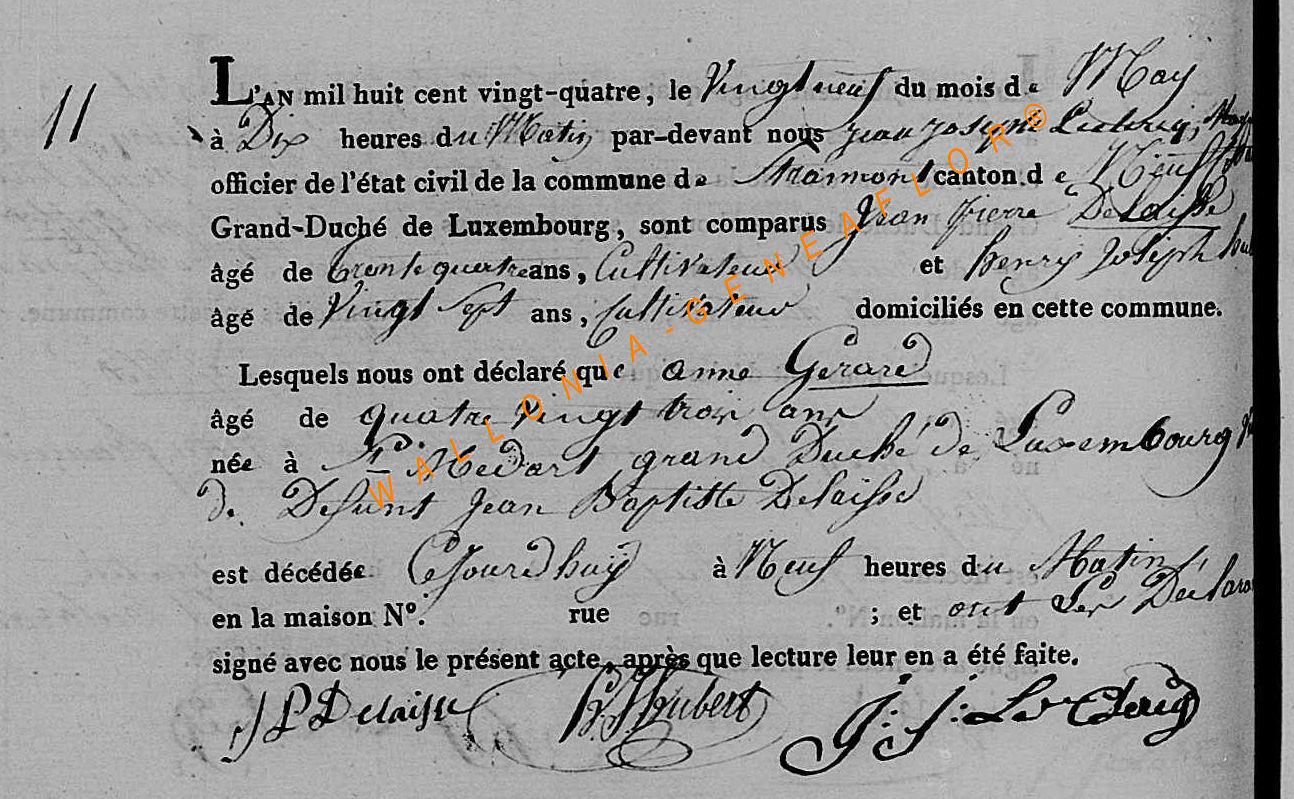 11
L'AN mil huit cent vingt-quatre, le Vingt neuf du mois de May
à Dix heures du Matin par-devant nous jean joseph Lecleriq,
officier de l'état civil de la commune de Straimont canton de
Grand-Duché de Luxembourg, sont comparus Jean pierre Delaisse
âgé de trente quatre ans, Cultivateur et henry Joseph
âgé de Vingt Sept ans, Cultivateur domiciliés en cette commune.
Lesquels nous ont déclaré que anne Gerard
âgé de quatre vingt trois ans
née à St Medart grand Duché de Luxembourg
de Defunt Jean Baptiste Delaisse
est décédée Cejourdhuy à Neuf heures du Matin
en la maison N°. rue ; et ont Les
signé avec nous le présent acte, après que lecture leur en a été faite.
JP Delaisse H J hubert J: J: Le Clerig
WALLONIA-GENEAFLOR®